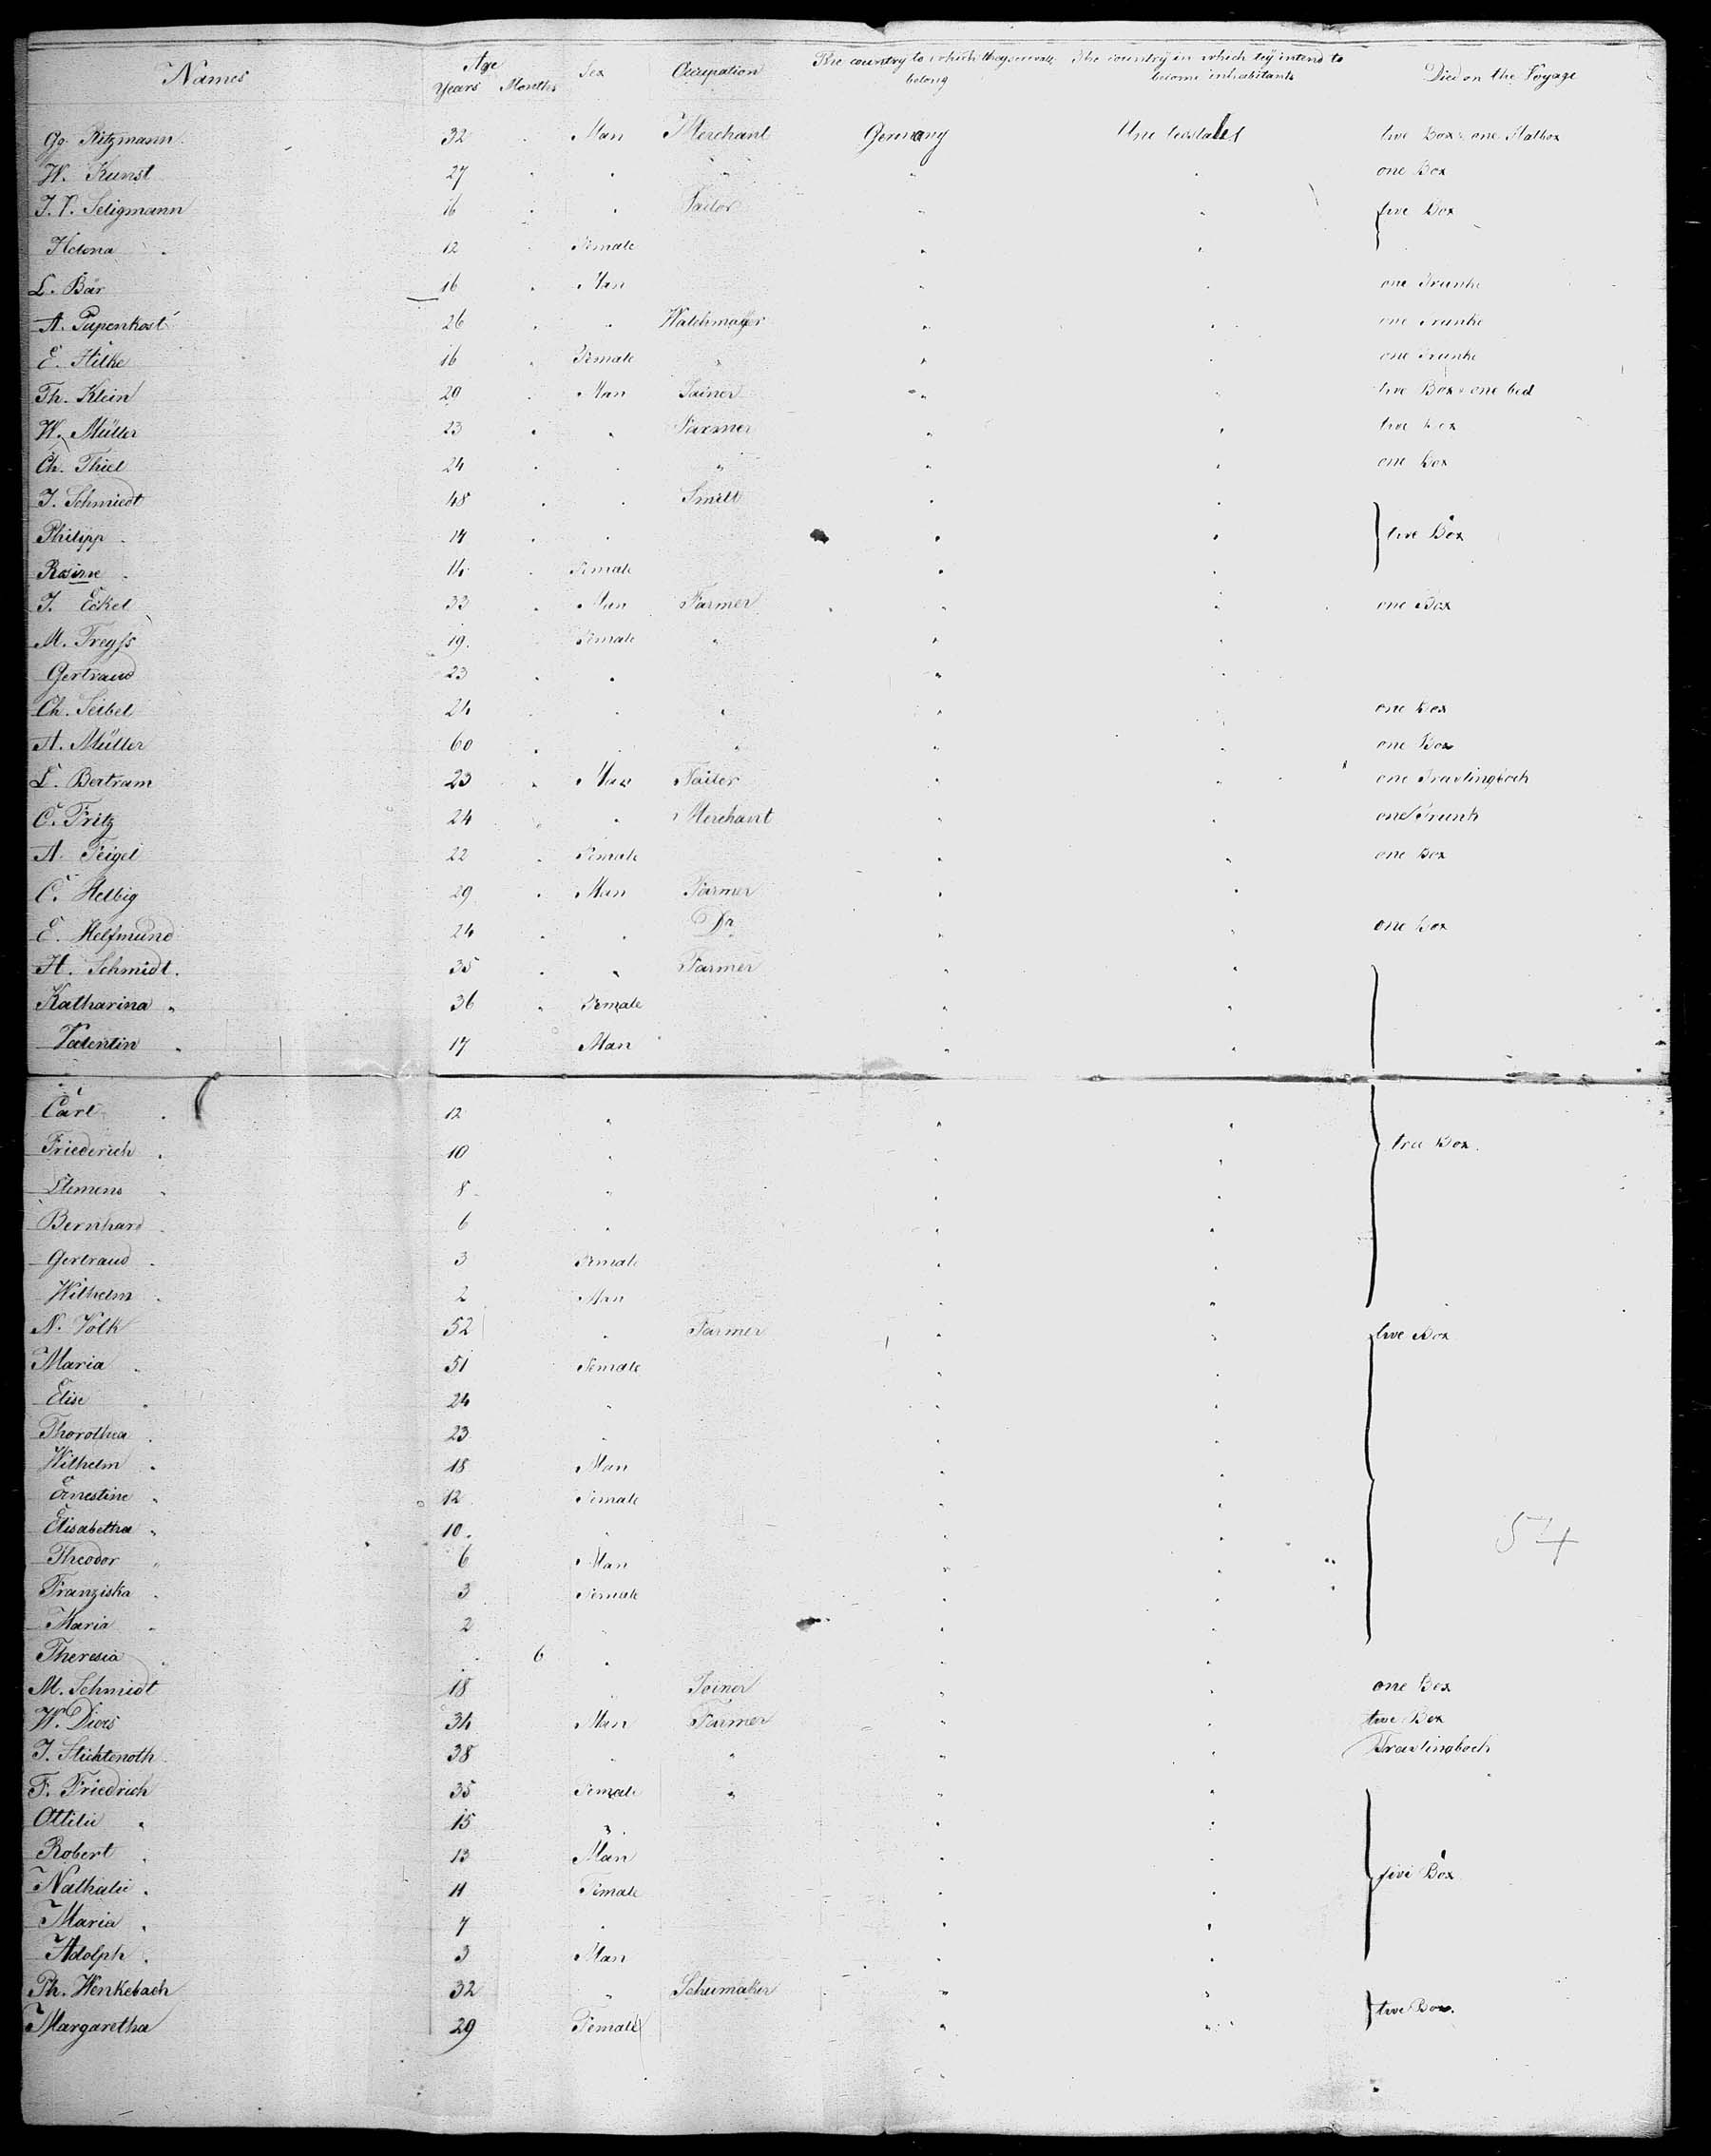 Names Age Years Months Sex Occupation The country to which they severally belong The country in which tey intend to become inhabitants Died on the Voyage
Gg. Ritzmann 32 Man Merchant Germany two Box one
W. Kunst 27 " " " " one Box
J. Seligmann 16 " " Tailor " " five Box
Helena " 12 Female " "
L. Bär 16 " Man " " one Trunk
A. Papenkost 26 " " Watchmaker " " one Trunke
E. Hilke 16 " Female " " " one Trunke
Th. Klein 29 " Man Joiner " " two Box one bed
W. Müller 23 " " Farmer " " two Box
Ch. Thiel 24 " " " " " one Box
J. Schmiedt 48 " " Smitt " "
Philipp " 14 " " " " two Box
Rosine " 14 " Female " "
J. Eckel 33 " Man Farmer " " one Box
M. Freyss 19 Female " " "
Gertraud 23 " " " "
Ch. Seibel 24 " " " " " one Box
A. Müller 60 " " " " " one Box
L. Bertram 23 " Man Tailer " " one
C. Fritz 24 " " Merchant " " one Trunk
A. Feigel 22 " Female " " one Box
C. Helbig 29 " Man Farmer " "
E. Helfmund 24 " " Dr " " one Box
H. Schmidt 35 " " Farmer " "
Katharina " 36 " Female " "
Valentin " 17 Man " "
Carl " 12 " " "
Friederich " 10 " " " tree Box
Clemens " 8 " " "
Bernhard " 6 " " "
Gertraud " 3 Female " "
Wilhelm " 2 Man " "
N. Volk 52 " Farmer " " two Box
Maria " 51 Female " "
Elise " 24 " " "
Thorothea " 23 " " "
Wilhelm " 18 Man " "
Ernestine " 12 Female " "
Elisabetha " 10 " " "
54
Theodor " 6 Man " "
Franziska " 3 Female " "
Maria " 2 " " "
Theresia " 6 " " "
M. Schmidt 18 " Joiner " " one Box
W. Diors 34 Man Farmer " " two Box
J. Stichtenoth 38 " " " "
F. Friedrich 35 Female " " "
Ottilie " 15 " " "
Robert " 13 Man " "
Nathalie " 11 Female " " five Box
Maria " 7 " " "
Adolph " 3 Man " "
Ph. Wenkebach 32 " Schumaker " "
Margaretha 29 Female " " two Box